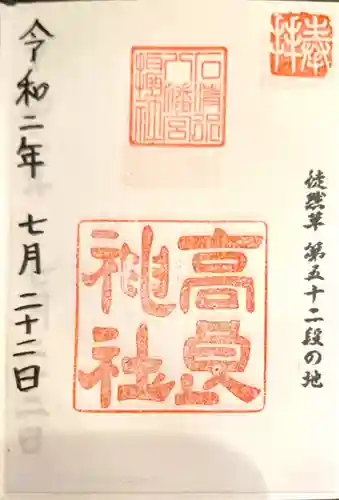 奉拝
徒然草 第五十二段の地
石清水八幡宮摂社
高良神社
令和二年 七月 二十二日